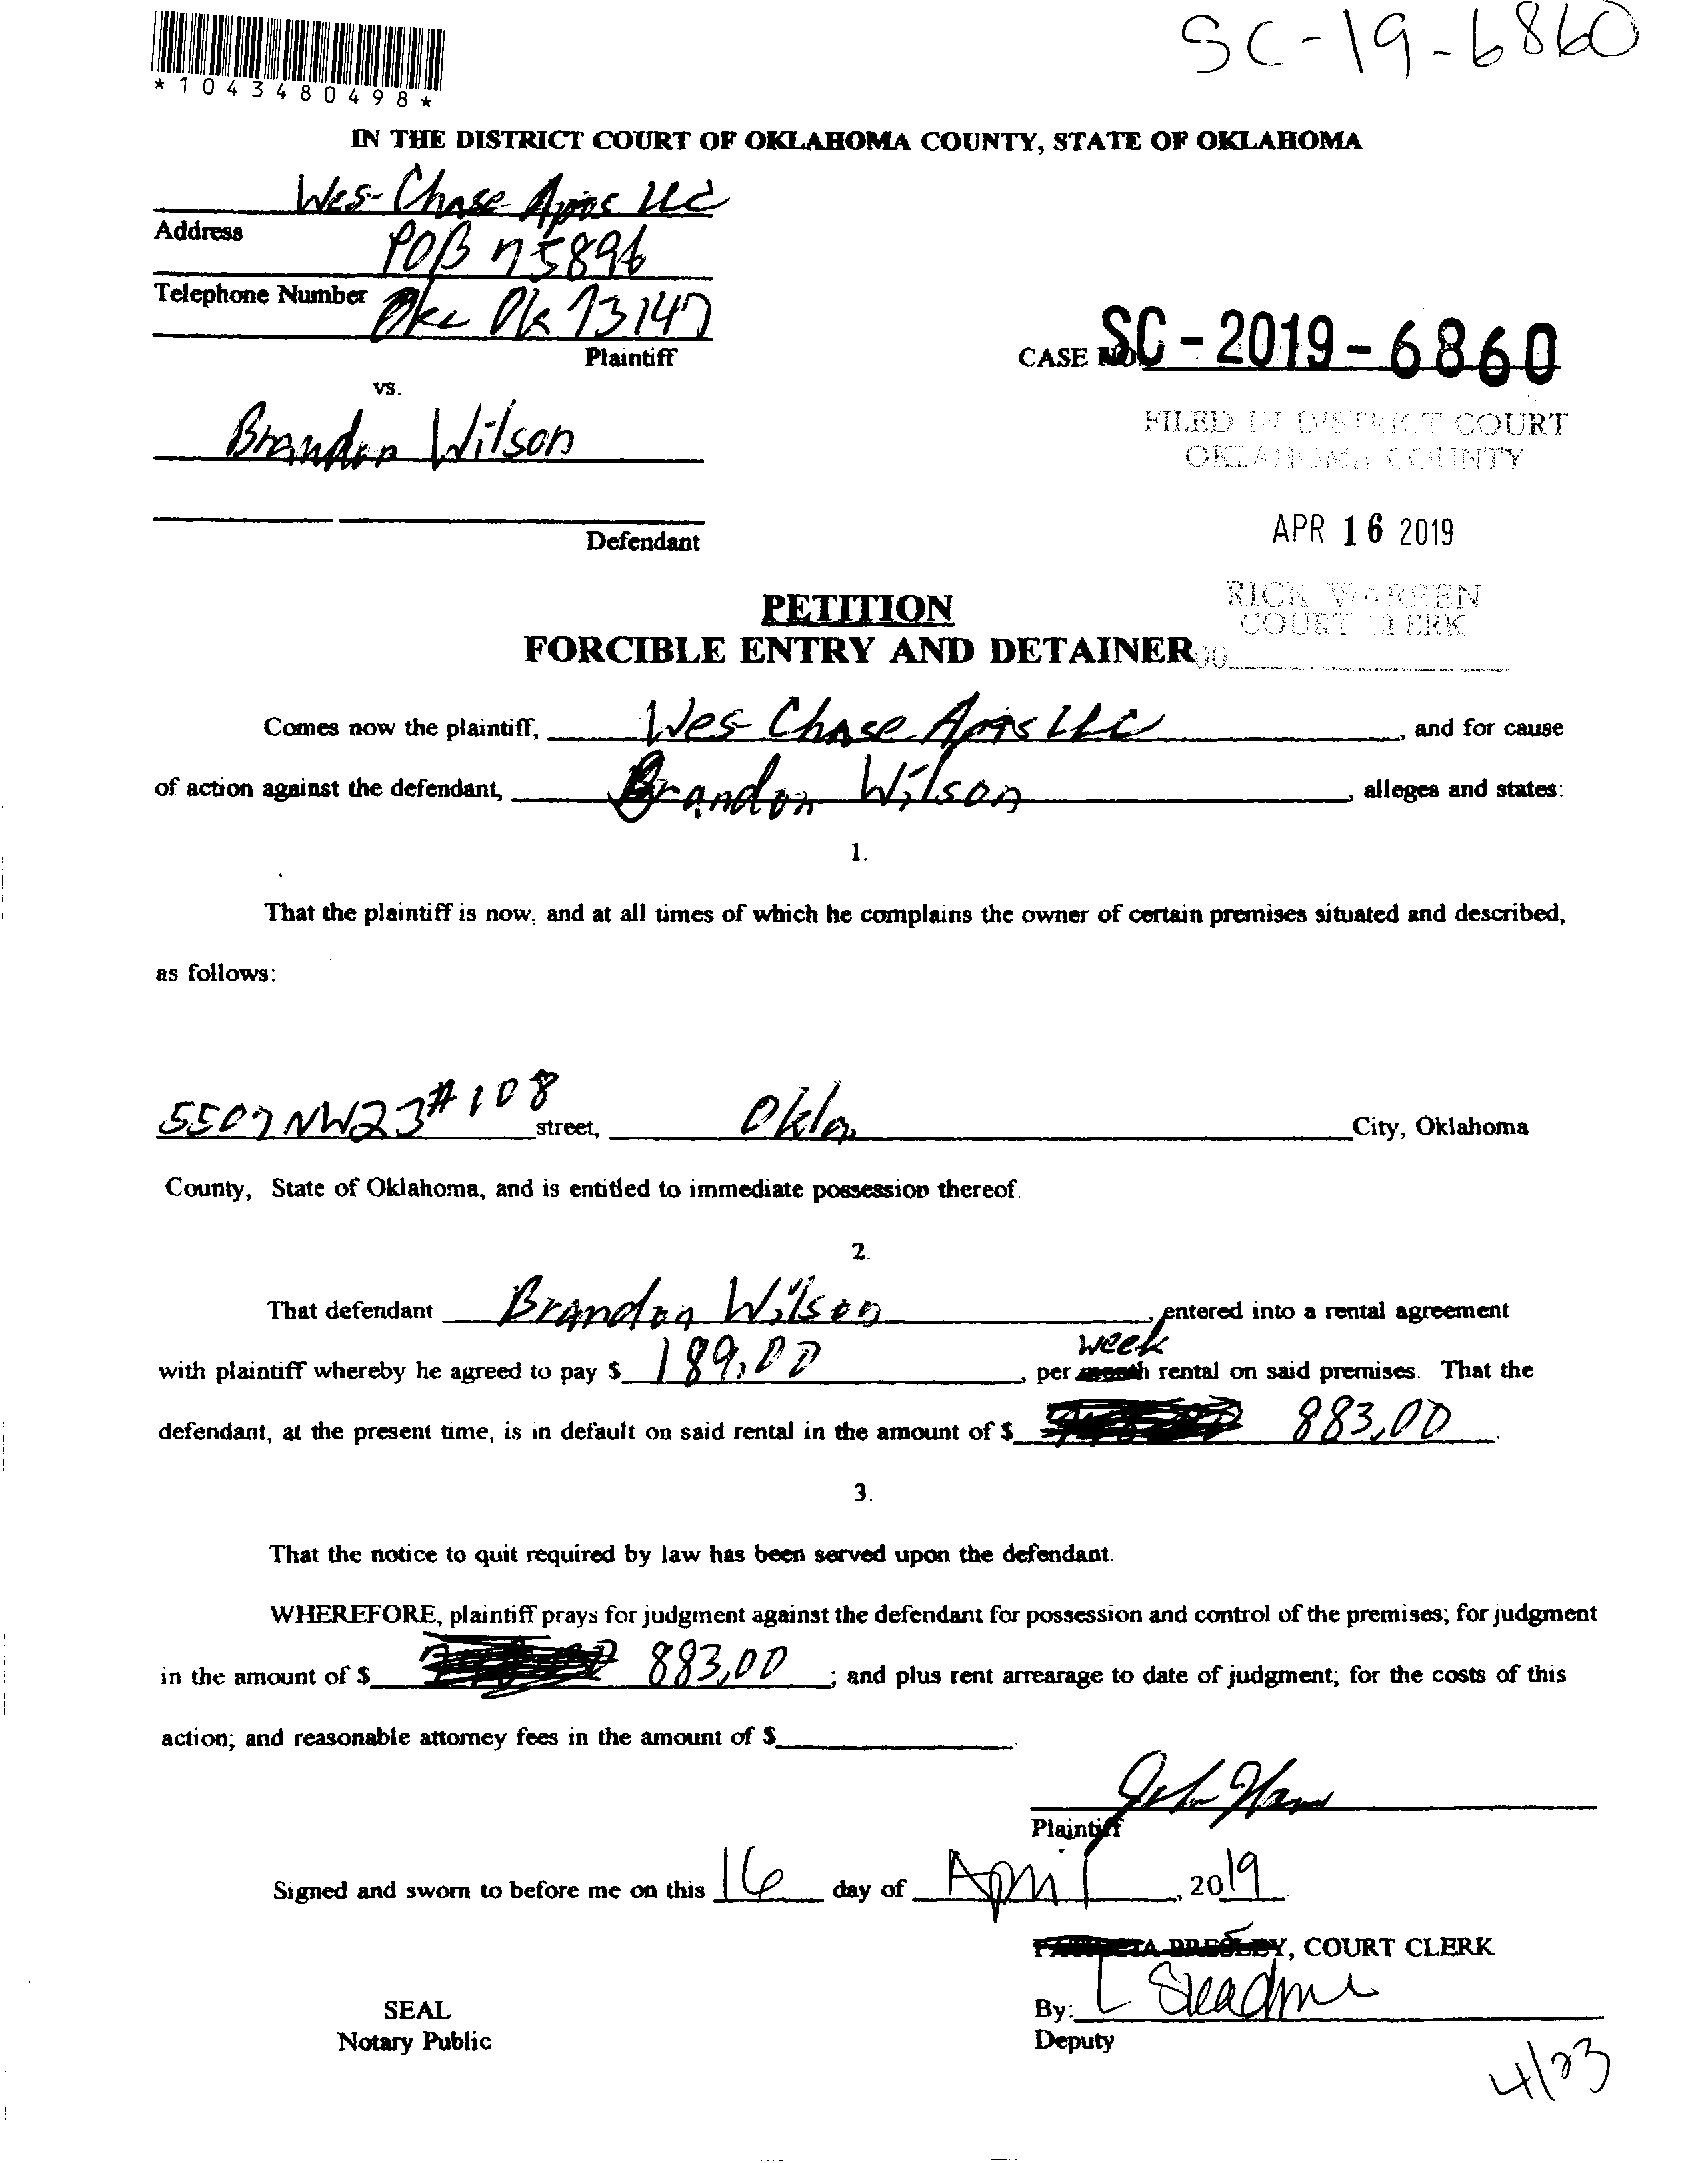 SC-19-6860
*1043480498*
IN THE DISTRICT COURT OF OKLAHOMA COUNTY, STATE OF OKLAHOMA
Wes-Chase Apts LLC
Address
POB 75896
Telephone Number
Okc Ok 73147
Plaintiff
CASE NO. SC-2019-6860
vs.
Brandon Wilson
FILED IN DISTRICT COURT
OKLAHOMA COUNTY
APR 16 2019
Defendant
RICK WARREN
COURT CLERK
PETITION
FORCIBLE ENTRY AND DETAINER
Comes now the plaintiff, Wes-Chase Apts LLC, and for cause
of action against the defendant, Brandon Wilson, alleges and states:
1.
That the plaintiff is now, and at all times of which he complains the owner of certain premises situated and described,
as follows:
5507 NW23 #108 street, Okla City, Oklahoma
County, State of Oklahoma, and is entitled to immediate possession thereof.
2.
That defendant Brandon Wilson, entered into a rental agreement
week
with plaintiff whereby he agreed to pay $ 189.00, per month rental on said premises. That the
defendant, at the present time, is in default on said rental in the amount of $ 883.00.
3.
That the notice to quit required by law has been served upon the defendant.
WHEREFORE, plaintiff prays for judgment against the defendant for possession and control of the premises; for judgment
in the amount of $ 883.00; and plus rent arrearage to date of judgment; for the costs of this
action; and reasonable attorney fees in the amount of $
Plaintiff
Signed and sworn to before me on this 16 day of April, 2019
PRESLEY, COURT CLERK
SEAL
By:
Notary Public
Deputy
4/23